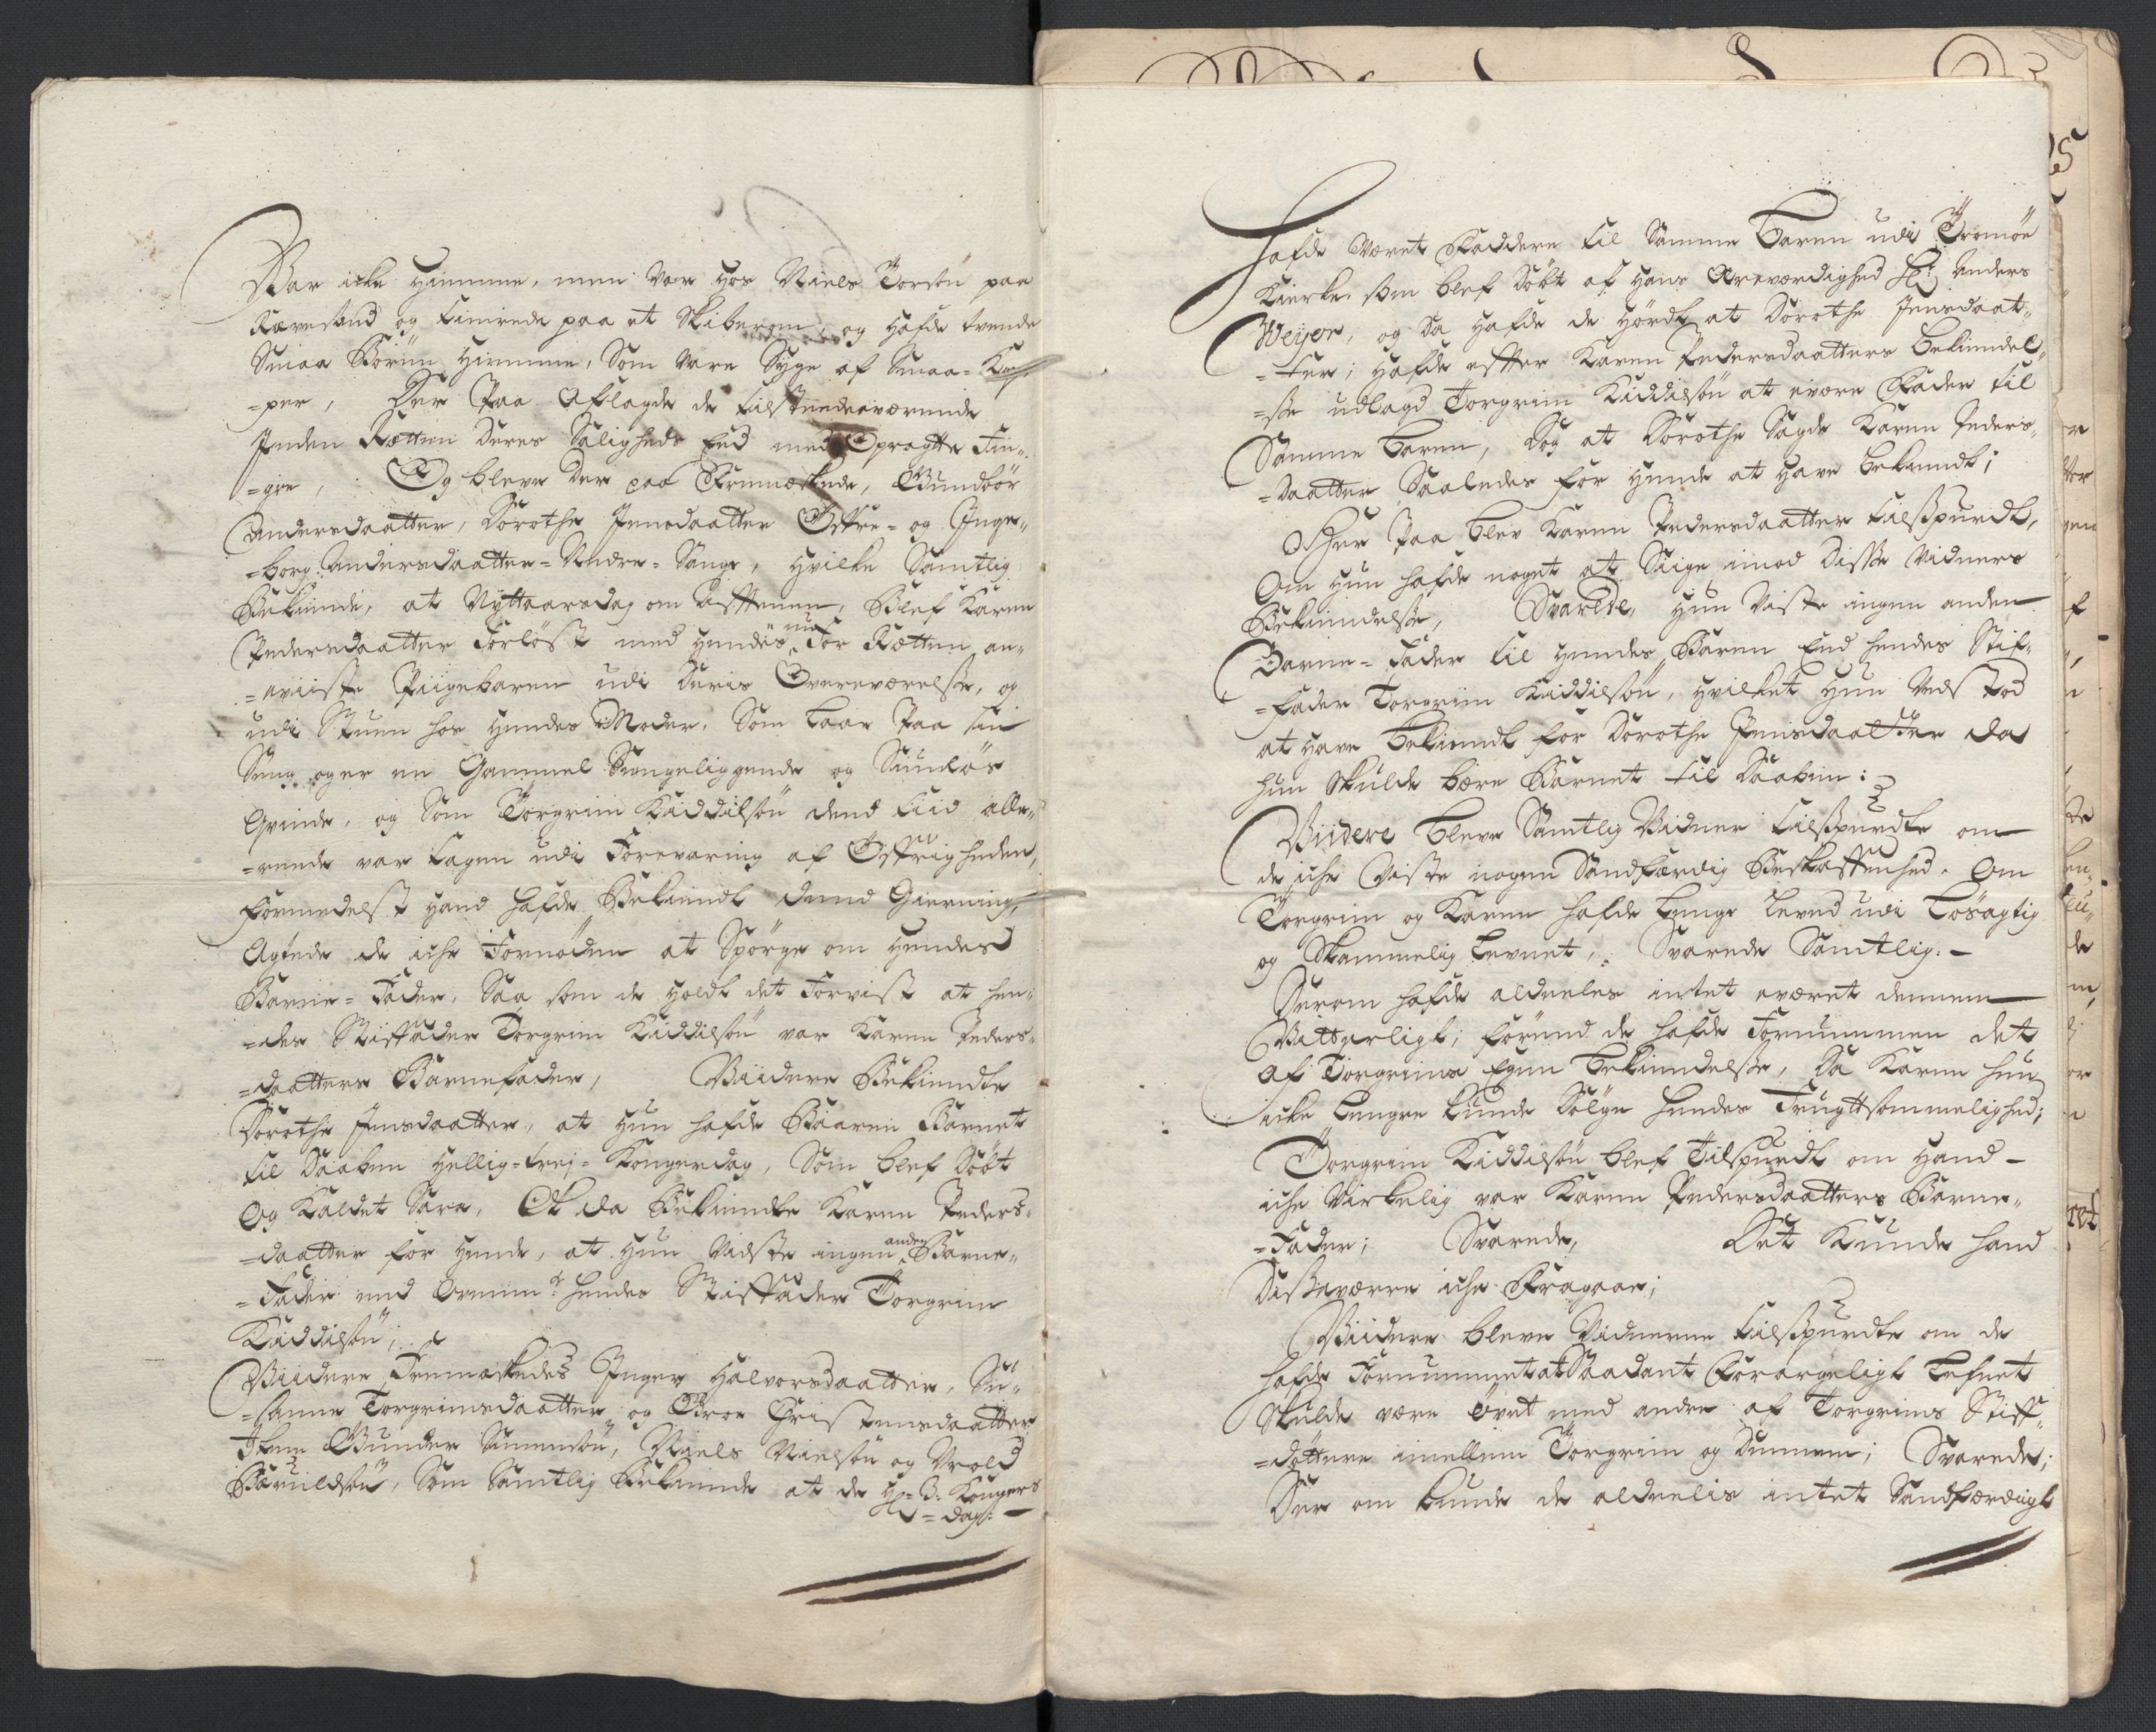 War icke Hiemme, men var hos Niels Torsön paa
Rævesand og timrede paa et Skiberom, og hafde trende
Smaa Börn Hiemme, Som vare Syge af Smaa-Kop-
=per, Der Paa Aflagde de tilstædeværende
Inden Rætten deres Saligheds Eed med Opragte Fin-
=gre, Og bleve Der paa Fremæskede, Gundbör
Andersdaatter, Dorothe Jensdaatter Östre- og Inge-
=borg Andersdaatter-Nedre-Songe, Hvilke Samtlig
Bekiende, at Nyttaarsdag om Afftenen, Blef Karen
Pedersdaatter Forlöst med hendes nu For Rætten an-
=viiste Piigebaren udi deris Overværelse, og
udi Stuen hos hendes Moder, Som laae Paa sin
Seng, og er en Gammel Sengeliggende og Siunlös
Qvinde, og Som Torgrim Kiddilsön dend tiid alle-
=rende var tagen udi Forvaring af Östrigheden,
formedelst hand hafde Bekiendt dend Gierning,
Agtede de iche Fornöden at Spörge om hendes
Barne-Fader, Saa som de holdt det Forvist at hen-
=des Stiffader Torgrim Kiddilsön var Karen Peders-
=daatters Barnefader, Viidere Bekiendte
Dorothe Jensdaatter, at hun hafde Baaren Barnet
til Daaben Hellig-trej-Kongersdag, Som blef Döbt
Og Kaldet Sara, Ok da Bekiendte Karen Peders-
=daatter for hende, at hun Vidste ingen anden Barne-
=Fader end bemte hendes Stiffader Torgrim
Kiddilsön;
Viidere Fremæskedes Inger Halvorsdaatter, Su-
=sanne Torgrimsdaatter og Groe Christensdaatter
Item Gunder Simensön, Niels Nielsön og Vrold
Bæruldsön, Som Samtlig Bekiende at de H: 3: Kongers
=dag: -
Hafde været Faddere til Samme Baren udi Tromöe
Kierke som blef Döbt af Hans Ærværdighed Hr: Anders
Weyer, og da hafde de Hördt at Dorothe Jensdaat-
=ter; hafde efter Karen Pedersdaatters Bekiendel-
=se udlagd Torgrim Kiddilsön at være Fader til
Samme Baren, dog at Dorothe Sagde Karen Peders-
=daatter Saaledes for hende at have bekiendt;
Der Paa blev Karen Pedersdaatter tilspurdt,
Om hun hafde noget at Siige imod disse Vidners
Bekiendelse, Svarede, hun Viste ingen anden
Barne-Fader til hendes Baren End hendes Stif-
=fader Torgrim Kiddilsön, hvilket hun Ved stod
at have bekiendt for Dorothe Jensdaatter da
hun skulde bære Barnet til Daaben:
Viidere bleve Samtlig Vidner tilspurdte om
de iche Viste nogen Sandfærdig Beskaffenhed. Om
Torgrim og Karen hafde lenge levned udi Lösagtig
og Skammelig Levnet, Svarede Samtlig: -
Derom hafde aldeles intet været dennem
Vitterligt; förend de hafde Fornummen det
Af Torgrims Egen Bekiendelse, da Karen hun
icke lengre kunde Dölge hendes Frugtsommelighed;
Torgrim Kiddilsön blef Tilspurdt om hand -
iche virkelig var Karen Pedersdaatters Barne-
=Fader; Svarede, Det Kunde hand
Dissværre iche Fragaae;
Viidere bleve Vidnerne tilspurdte om de
hafde Fornummet at Saadant Forargeligt Lefnet
skulde være övet med andre af Torgrims Stiff-
=döttere imellem Torgrim og dennem; Svarede;
Der om kunde de aldeelis intet Sandfærdigt